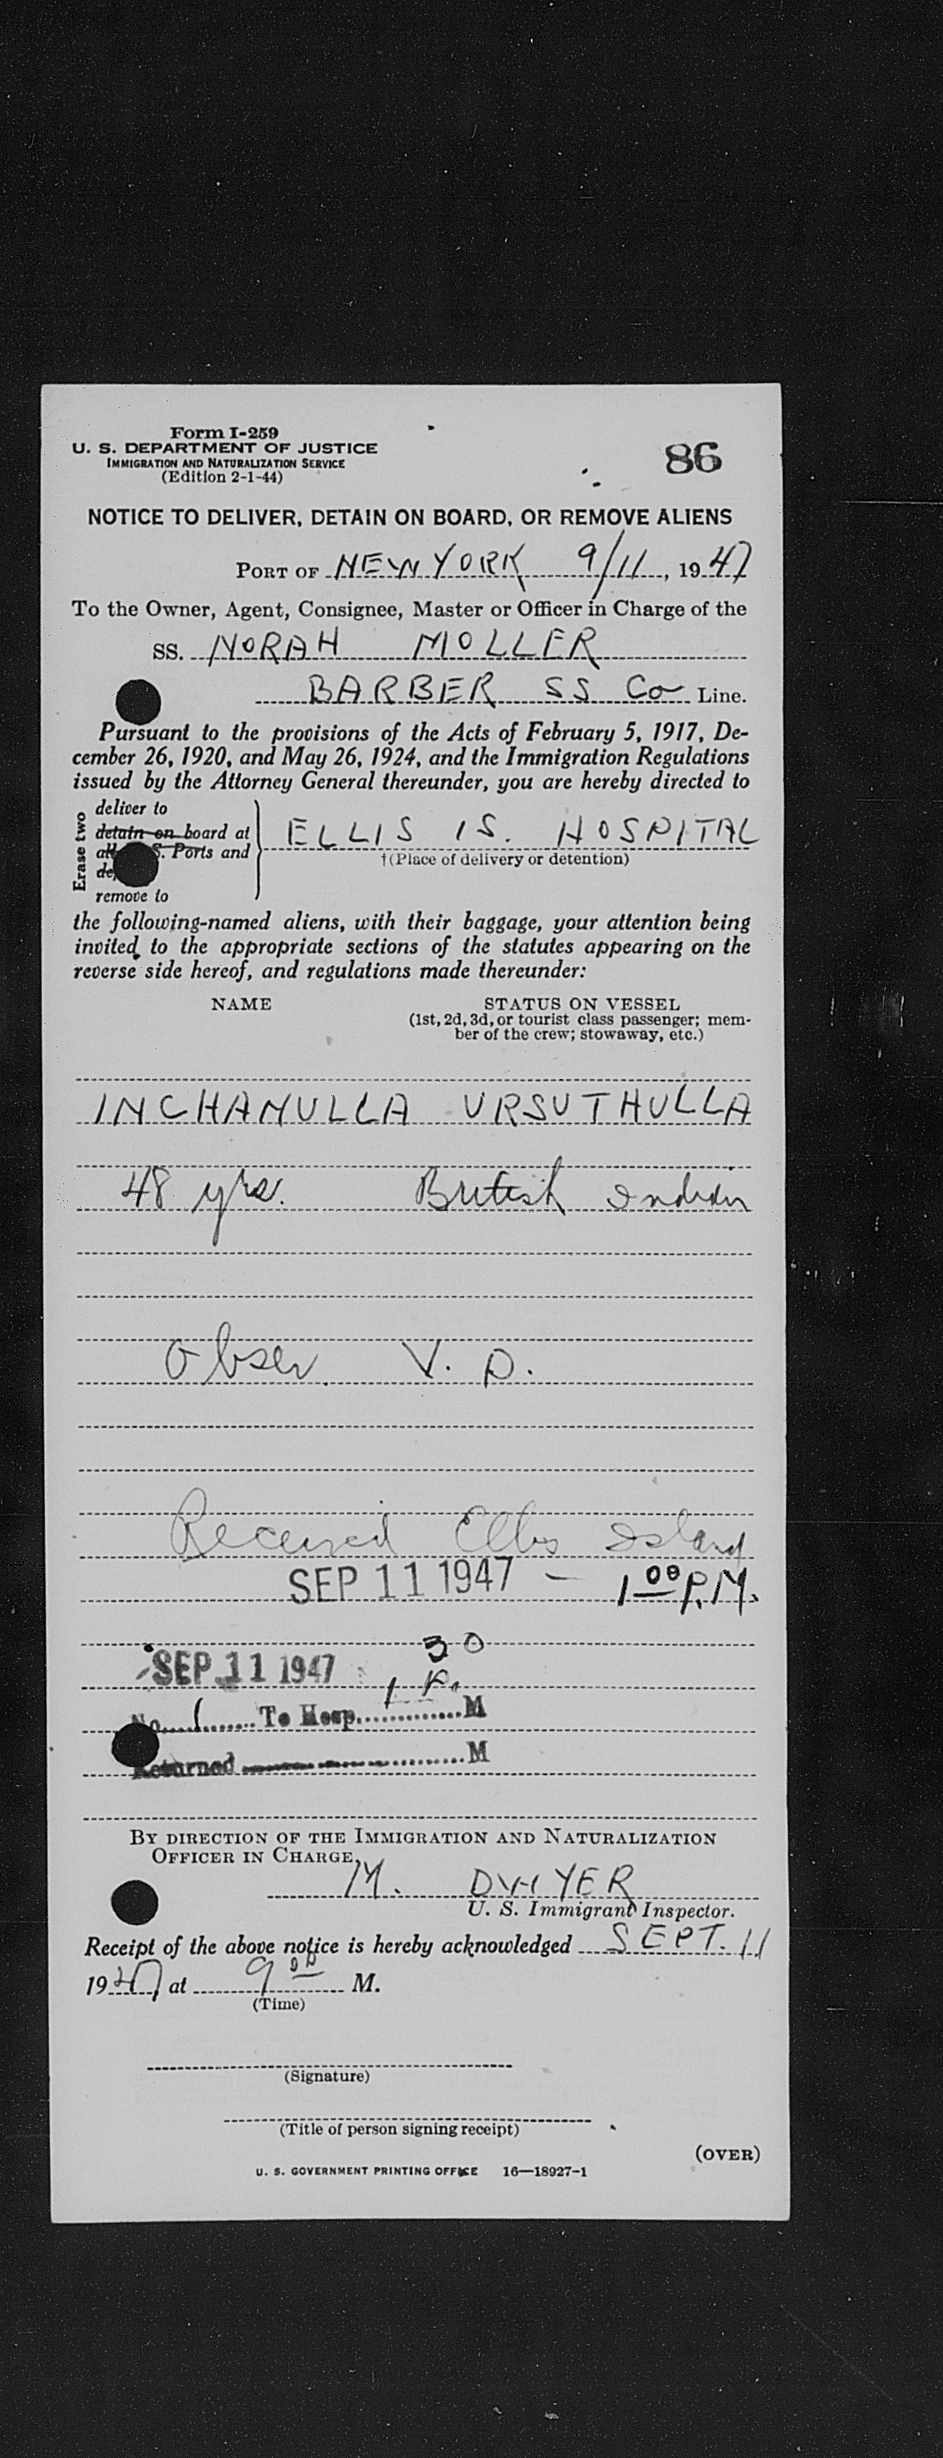 Form I-259
U. S. DEPARTMENT OF JUSTICE
IMMIGRATION AND NATURALIZATION SERVICE
(Edition 2-1-44)
86
NOTICE TO DELIVER, DETAIN ON BOARD, OR REMOVE ALIENS
PORT OF NEW YORK 9/11, 1947
To the Owner, Agent, Consignee, Master or Officer in Charge of the
SS. NORAH MOLLER
BARBER SS Co Line.
Pursuant to the provisions of the Acts of February 5, 1917, De-
cember 26, 1920, and May 26, 1924, and the Immigration Regulations
issued by the Attorney General thereunder, you are hereby directed to
Erase two
deliver to
detain on board at
S. Ports and
remove to
ELLIS IS. HOSPITAL
†(Place of delivery or detention)
the following-named aliens, with their baggage, your attention being
invited to the appropriate sections of the statutes appearing on the
reverse side hereof, and regulations made thereunder:
NAME STATUS ON VESSEL
(1st, 2d, 3d, or tourist class passenger; mem-
ber of the crew; stowaway, etc.)
INCHANULLA URSUTHULLA
48 yrs. British Indian
Obser. V. D.
Received Ellis Island
SEP 11 1947 — 1 00 P.M.
SEP 11 1947
1 30 P.
No. 1 To Hosp. M
Returned M
BY DIRECTION OF THE IMMIGRATION AND NATURALIZATION
OFFICER IN CHARGE,
M. DWYER
U. S. Immigrant Inspector.
Receipt of the above notice is hereby acknowledged SEPT. 11
1947 at 9 00 M.
(Time)
(Signature)
(Title of person signing receipt)
(OVER)
U. S. GOVERNMENT PRINTING OFFICE 16—18927-1